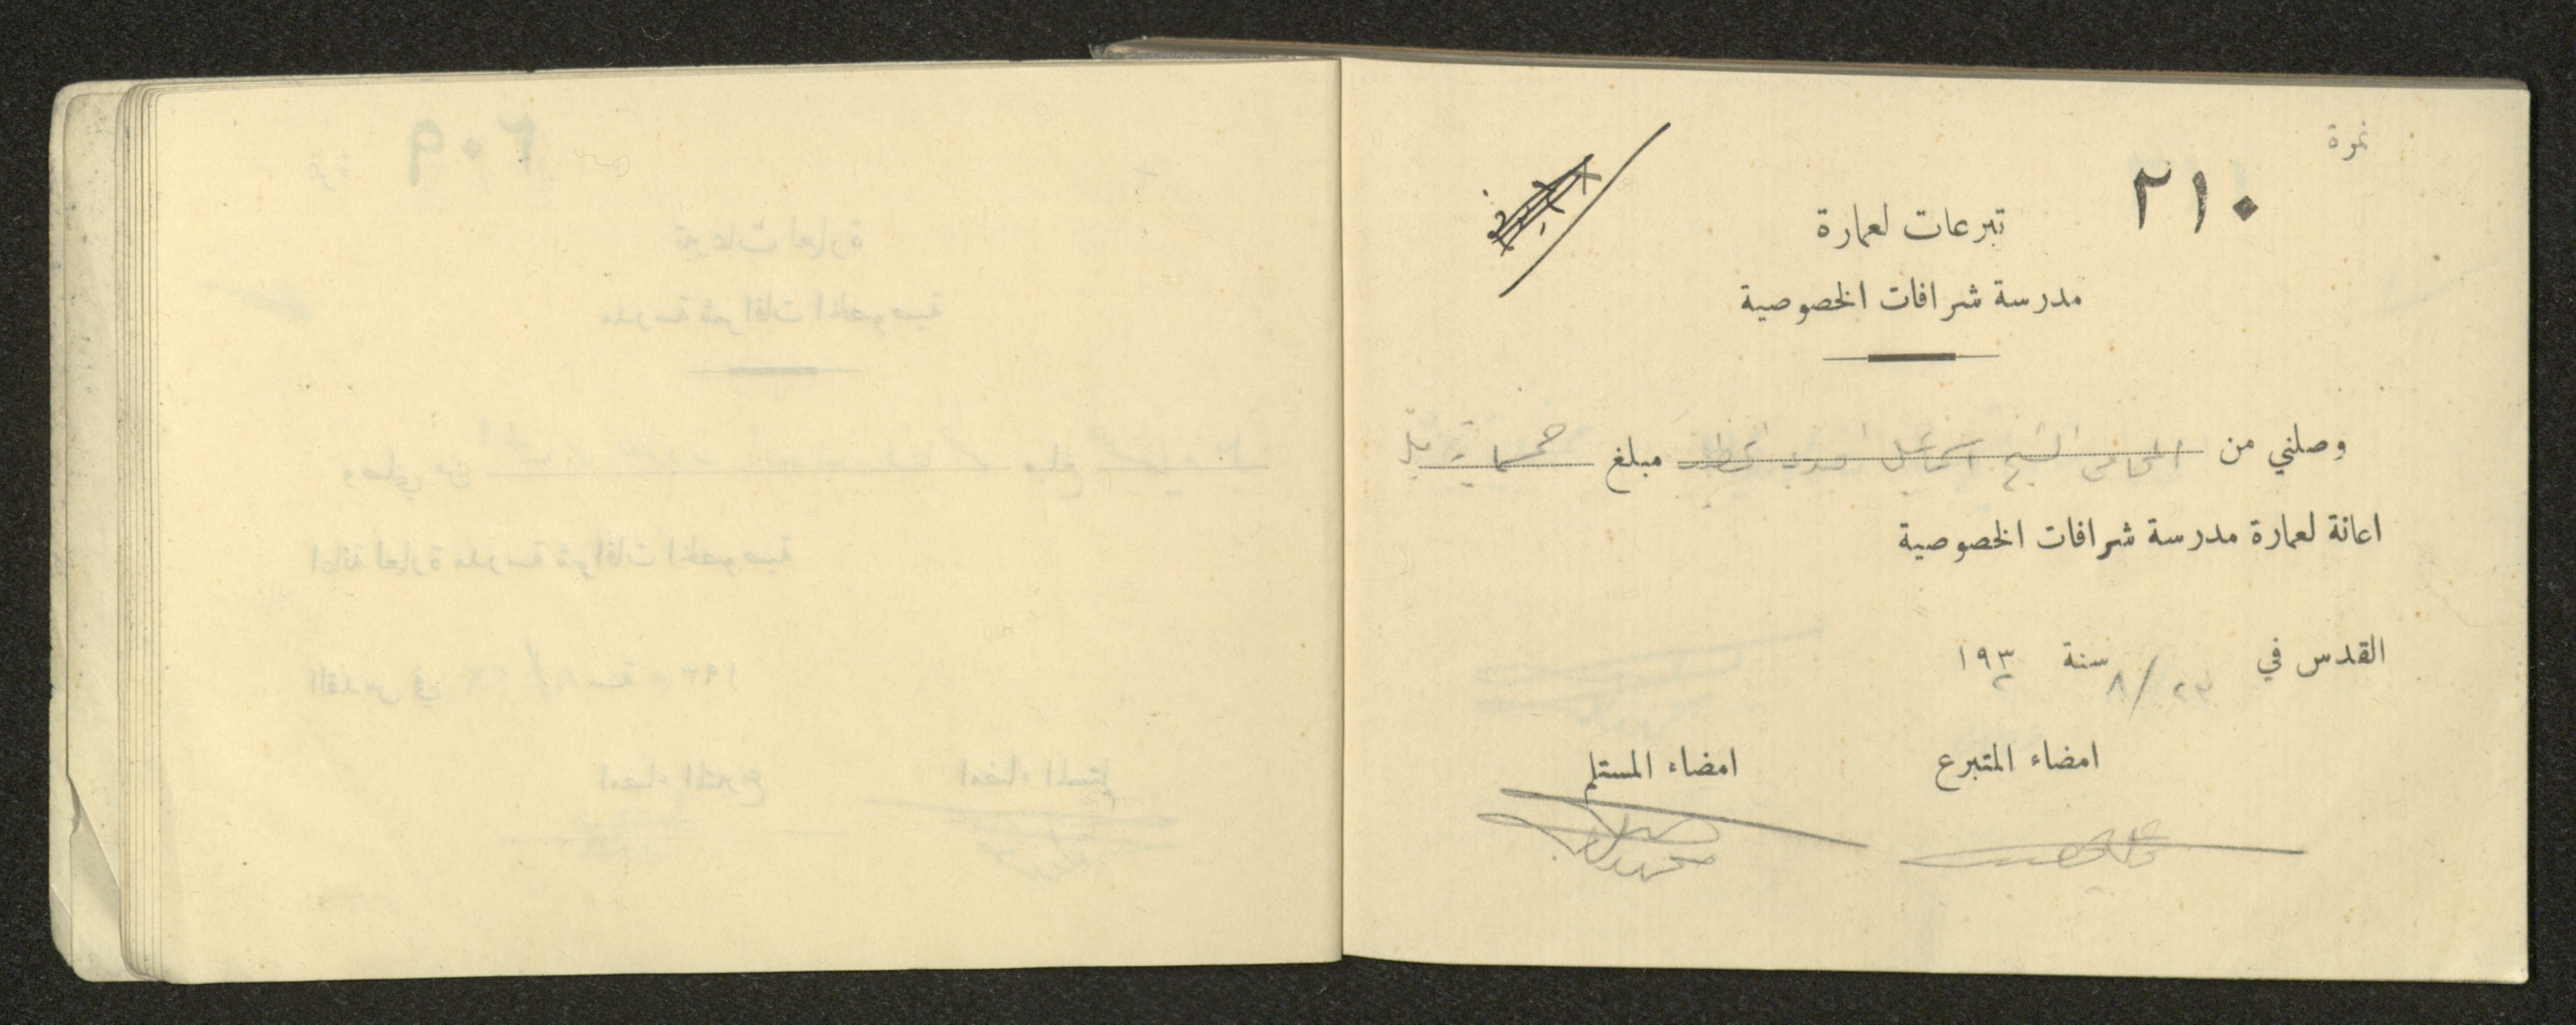 نمرة
٢١٠
تبرعات لعمارة
مدرسة شرافات الخصوصية
وصلني من المحامي الشيخ اسماعيل افندي مبلغ خمسماية مل
اعانة لعمارة مدرسة شرافات الخصوصية
القدس في ٢٣/٨ سنة ١٩٣٢
امضاء المتبرع
امضاء المستلم